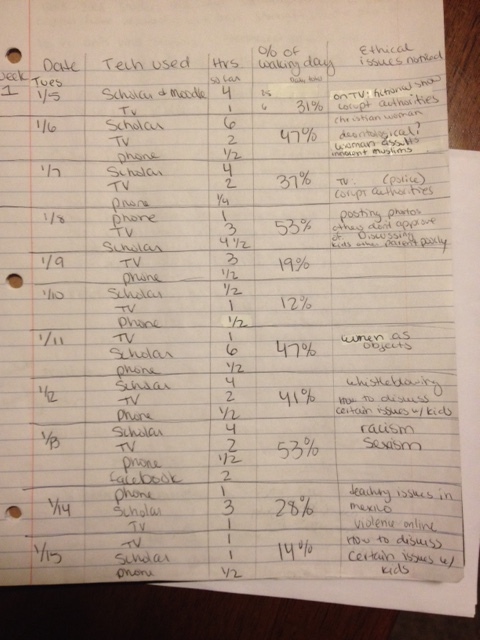 Date Tech used Hrs % of waking day Ethical issues noticed
so far daily total
week 1 Tues
1/5 Scholar & Moodle 4 25 on TV: fictional show
TV 1 6 31% corupt authorities
1/6 Scholar 6 christian woman
TV 2 47% deontological?
phone 1/2 woman assults innocent muslims
1/7 Scholar 4
TV 2 37% TV: (police)
phone 1/4 corupt authorities
1/8 phone 1 posting photos
TV 3 53% others dont approve of
Scholar 4 1/2 Discussing kids other parent poorly
1/9 TV 3 19%
phone 1/2
1/10 Scholar 1/2
TV 1 12%
phone 1/2
1/11 TV 1 women as
Scholar 6 47% objects
phone 1/2
1/12 Scholar 4 whistleblowing
TV 2 41% How to discuss
phone 1/2 certain issues w/ kids
1/13 Scholar 4 racism
TV 2 53% Sexism
phone 1/2
facebook 2
1/14 phone 1 teaching issues in
Scholar 3 28% mexico
TV 1 violence online
1/15 TV 1 How to discuss
Scholar 1 14% certain issues w/
phone 1/2 kids